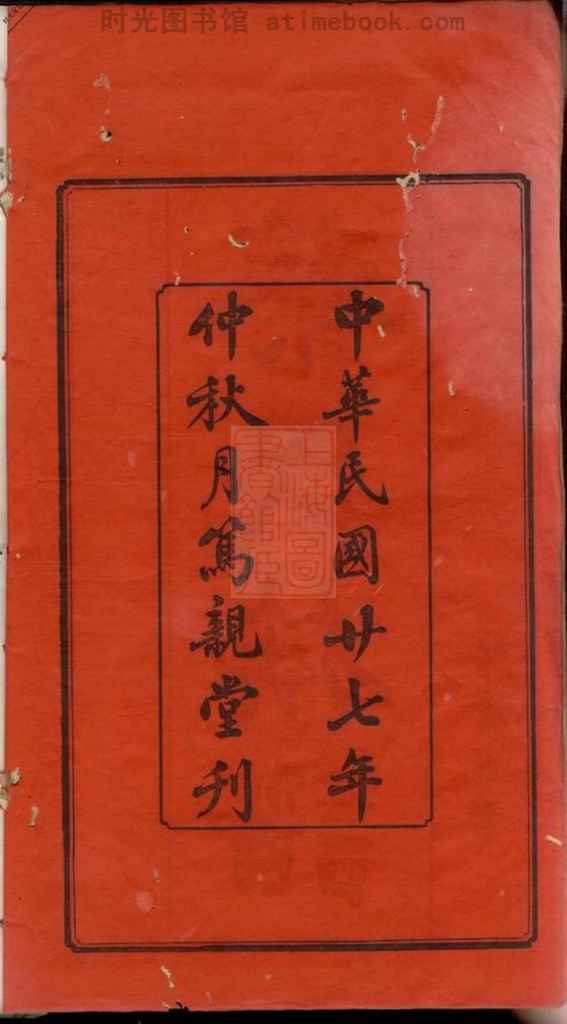 时光图书馆 atimebook.com
中華民國廿七年
仲秋月篤親堂刋